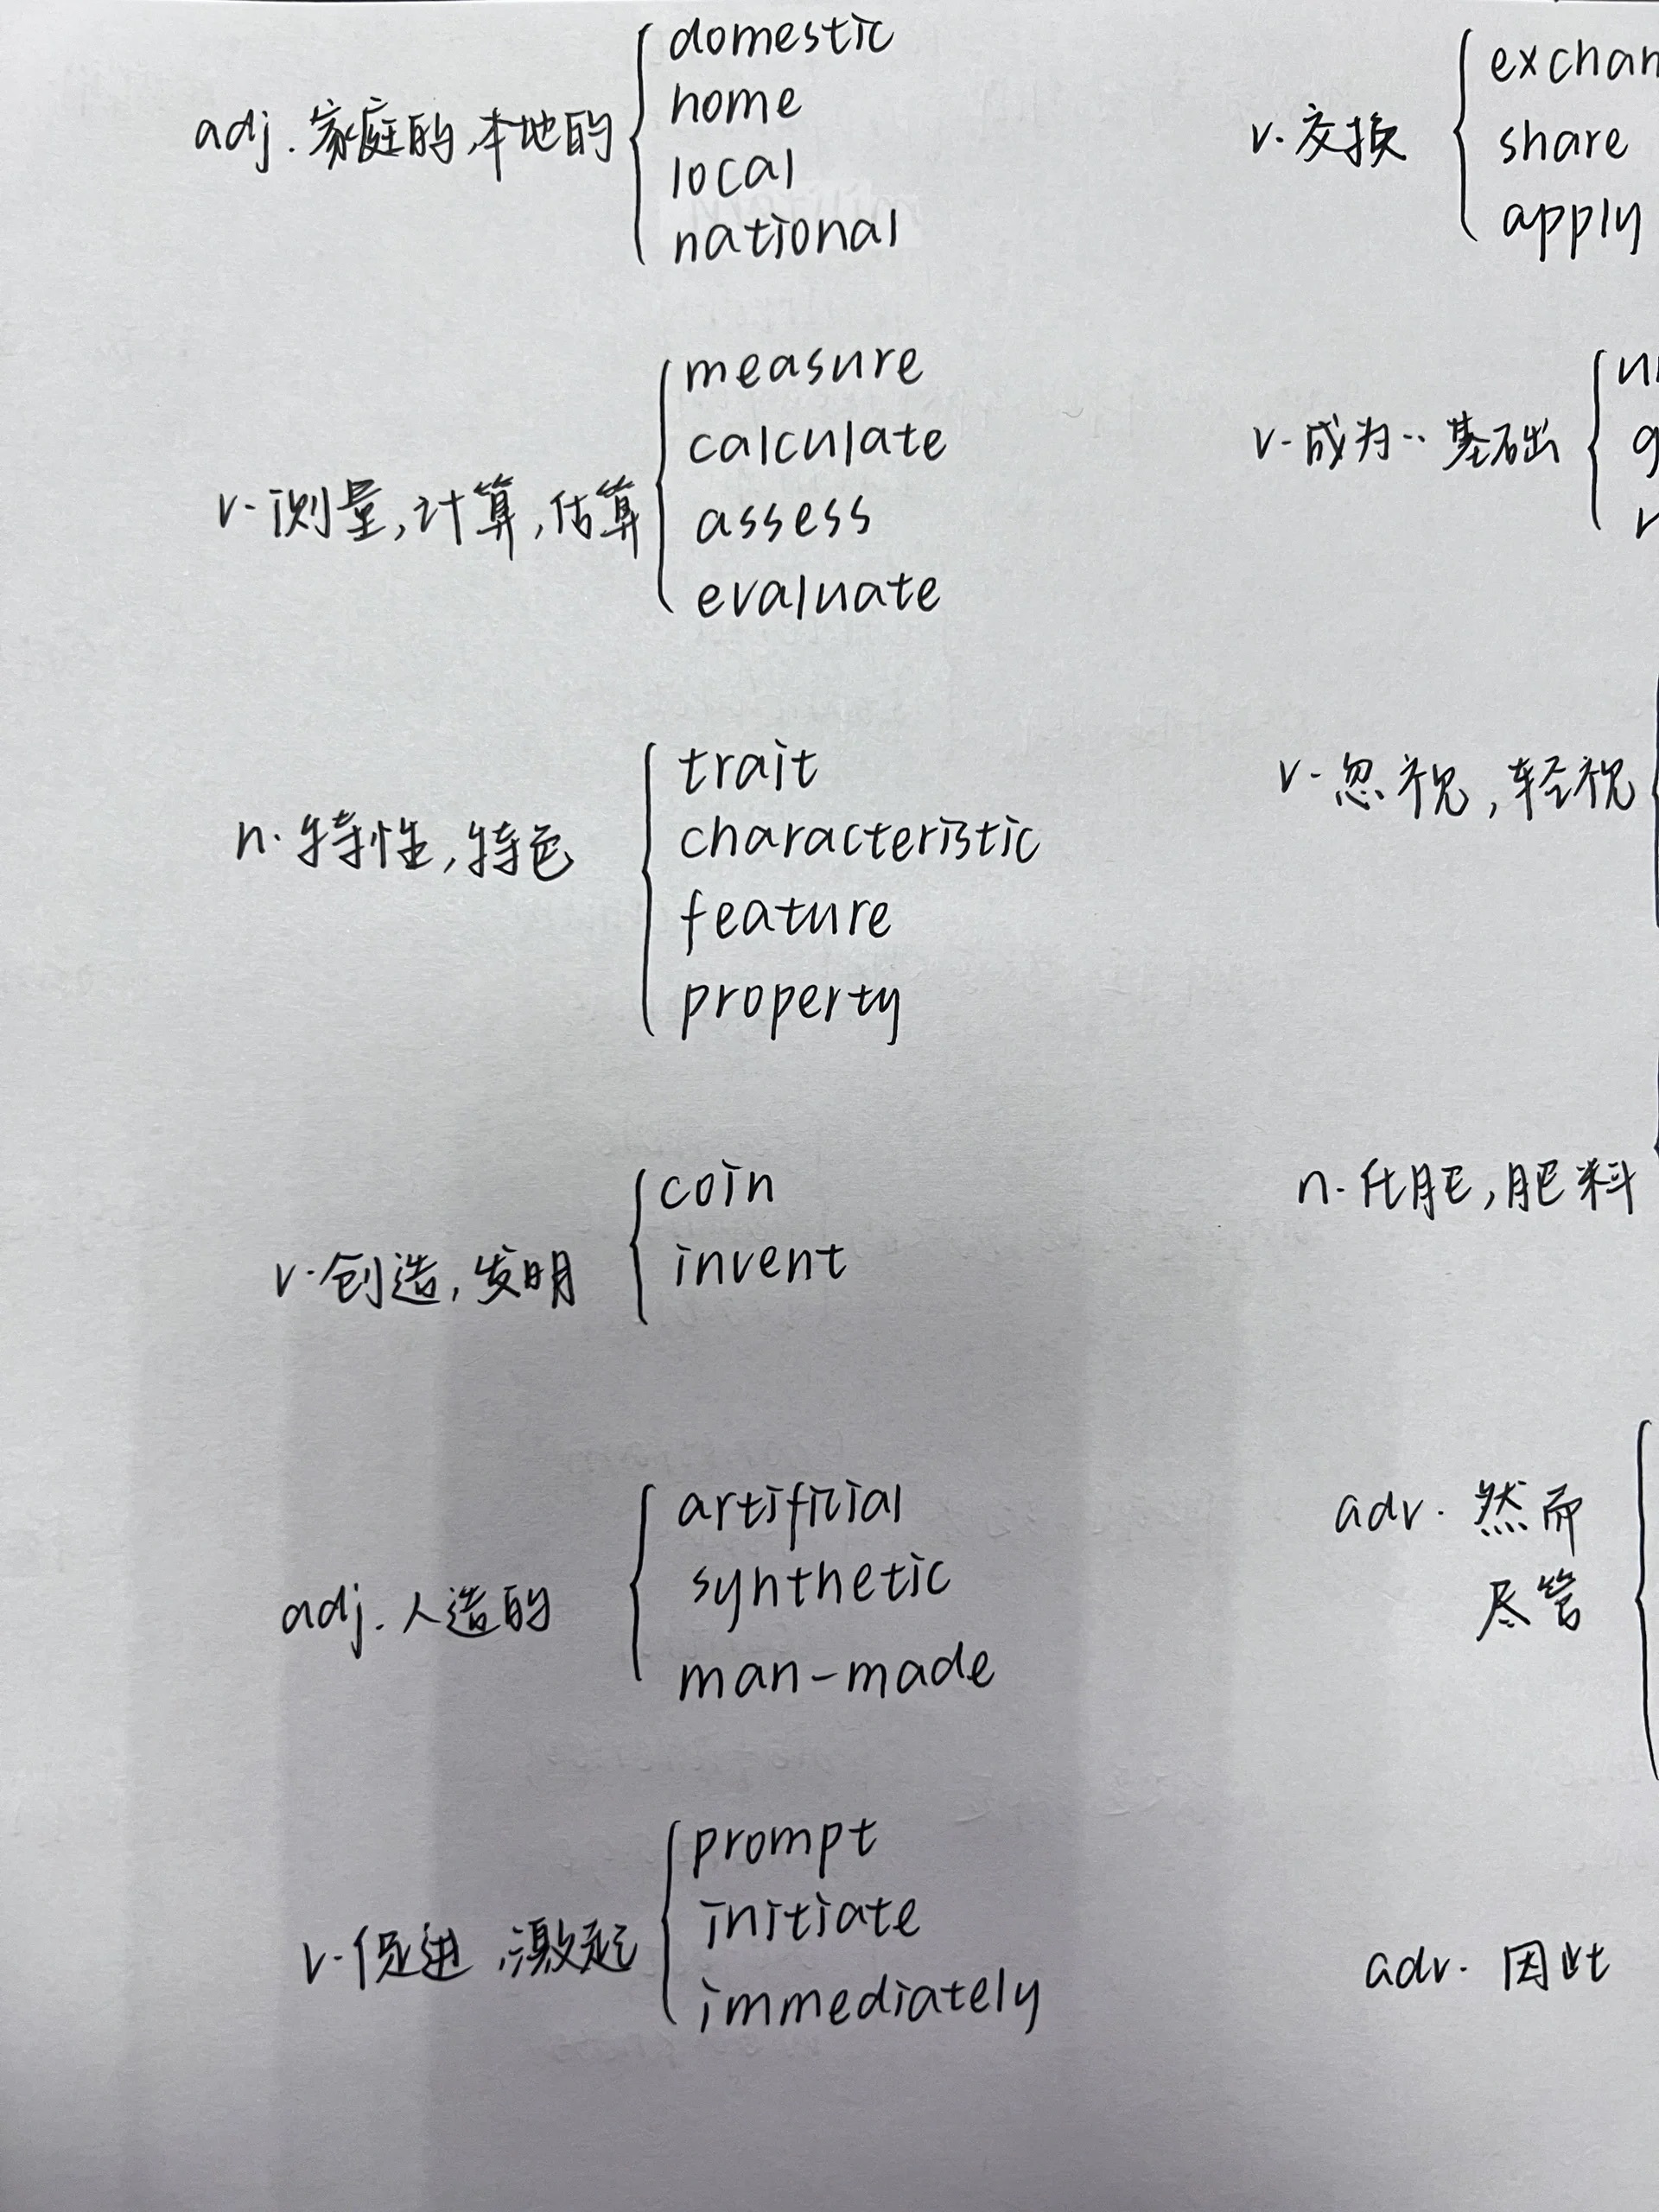 adj. 家庭的,本地的
domestic
home
local
national
v. 测量,计算,估算
measure
calculate
assess
evaluate
n. 特性,特色
trait
characteristic
feature
property
v. 创造,发明
coin
invent
adj. 人造的
artificial
synthetic
man-made
v. 促进,激起
prompt
initiate
immediately
v. 交换
share
apply
v. 成为·· 基础
v. 忽视,轻视
n. 化肥,肥料
adv. 然而
尽管
adv. 因此